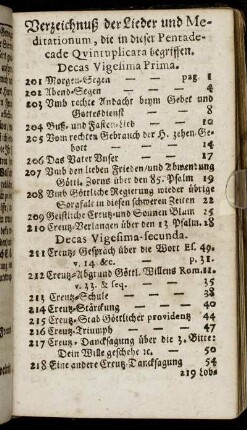 Verzeichnuß der Lieder und Me-
ditationum, die in dieser Pentade-
cade Qvintuplicata begriffen.
Decas Vigesima Prima.
201 Morgen-Segen — — pag. 1
202 Abend-Segen — — 4
203 Umb rechte Andacht beym Gebet und
Gottesdienst — — 8
204 Buß- und Fasten-Lied — — 10
205 Vom rechten Gebrauch der H. zehen Ge-
bott — — — 14
206 Das Vater Unser — — 17
207 Umb den lieben Frieden/und Abwentung
Göttl. Zorns über den 85. Psalm 19
208 Umb Göttliche Regierung wieder übrige
Sorgfalt in diesen schweren Zeiten 22
209 Geistliche Creutz- und Sonnen Blum 25
210 Creutz-Verlangen über den 13 Psalm. 28
Decas Vigesima-secunda.
211 Creutz-Gespräch über die Wort Es. 49.
v. 14. &c. — — p. 31.
212 Creutz- und Göttl. Willens Rom. 11.
v. 33. & seq. — — 35
213 Creutz-Schule — — 38
214 Creutz-Stärckung — — 40
215 Creutz-Stab Göttlicher providentz 44
216 Creutz-Triumph — — 47
217 Creutz-Dancksagung über die 3. Bitte:
Dein Wille geschehe ꝛc. — 50
218 Eine andere Creutz-Dancksagung 54
219 Lobs